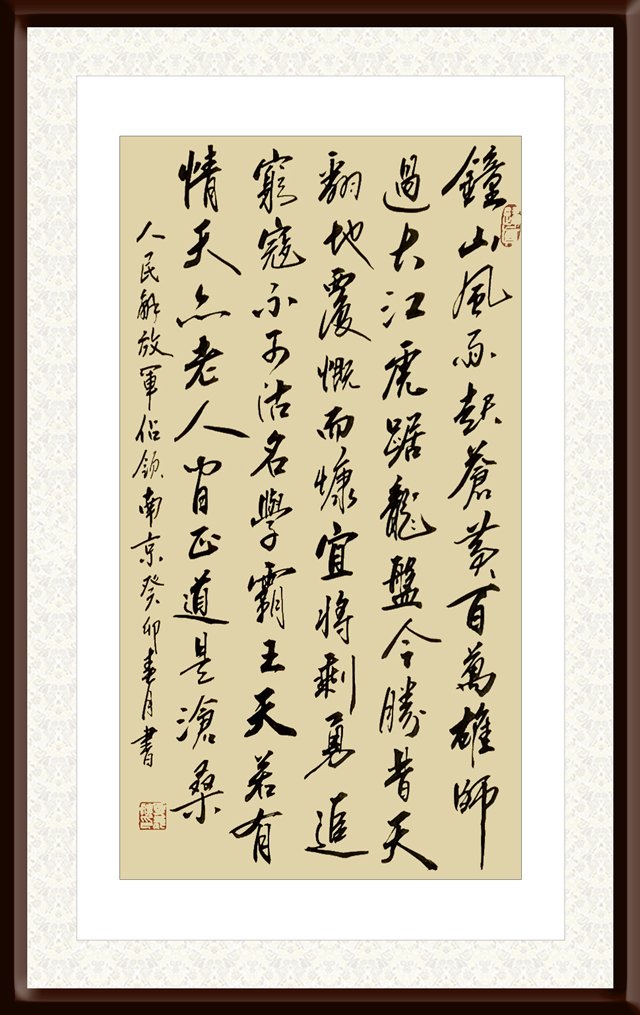 鐘山風雨起蒼黃百萬雄師
過大江虎踞龍盤今勝昔天
翻地覆慨而慷宜將剩勇追
窮寇不可沽名學霸王天若有
情天亦老人間正道是滄桑
人民解放軍佔領南京癸卯春月書